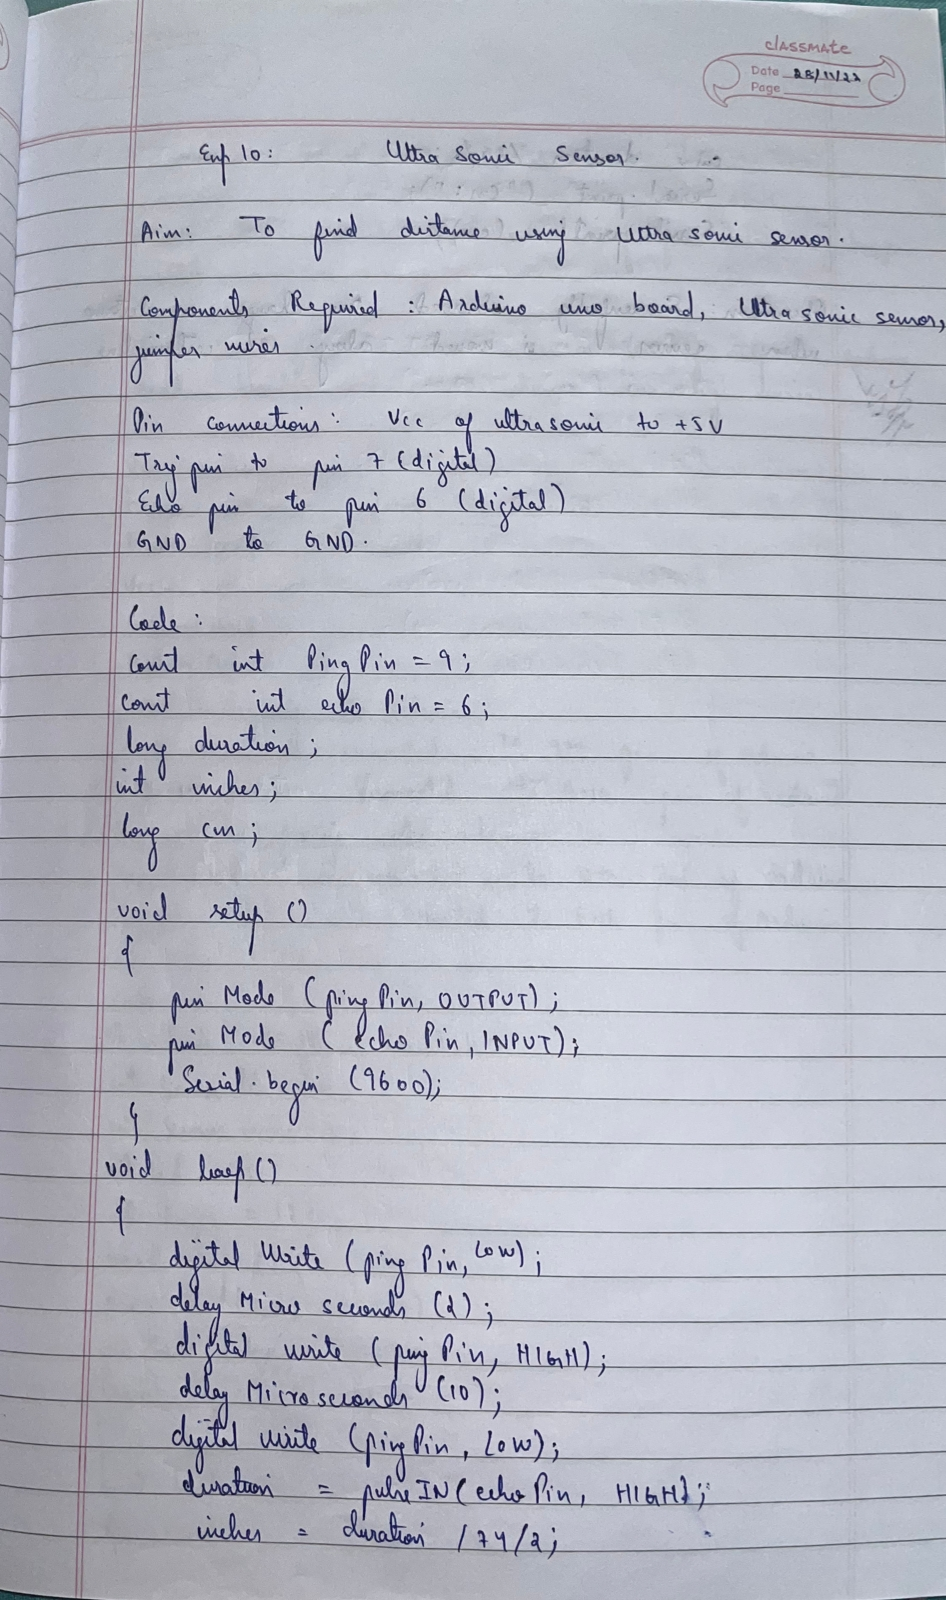 classmate
Date 28/11/22
Page
Exp 10: Ultra Sonic Sensor.
Aim: To find distance using Ultra sonic sensor.
Components Required : Arduino uno board, Ultra sonic sensor,
jumper wires.
Pin connections: Vcc of ultrasonic to +5V
Trig pin to pin 7 (digital)
Echo pin to pin 6 (digital)
GND to GND.
Code :
const int Ping Pin = 9;
const int echo Pin = 6;
long duration;
int inches;
long cm;
void setup ()
{
pin Mode (ping Pin, OUTPUT);
pin Mode (echo Pin, INPUT);
Serial.begin (9600);
}
void loop ()
{
digital Write (ping Pin, LOW);
delay Micro seconds (2);
digital write (ping Pin, HIGH);
delay Microseconds (10);
digital write (ping Pin, LOW);
duration = pulse IN (echo Pin, HIGH);
inches = duration /74/2;